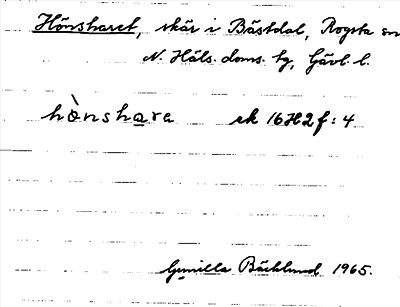 Hönsharet, skär i Bästdal, Rogsta sn
N. Häls. doms. tg, Gävl. l.
hònshạre ek 16H2f:4
Gunilla Bäcklund 1965.